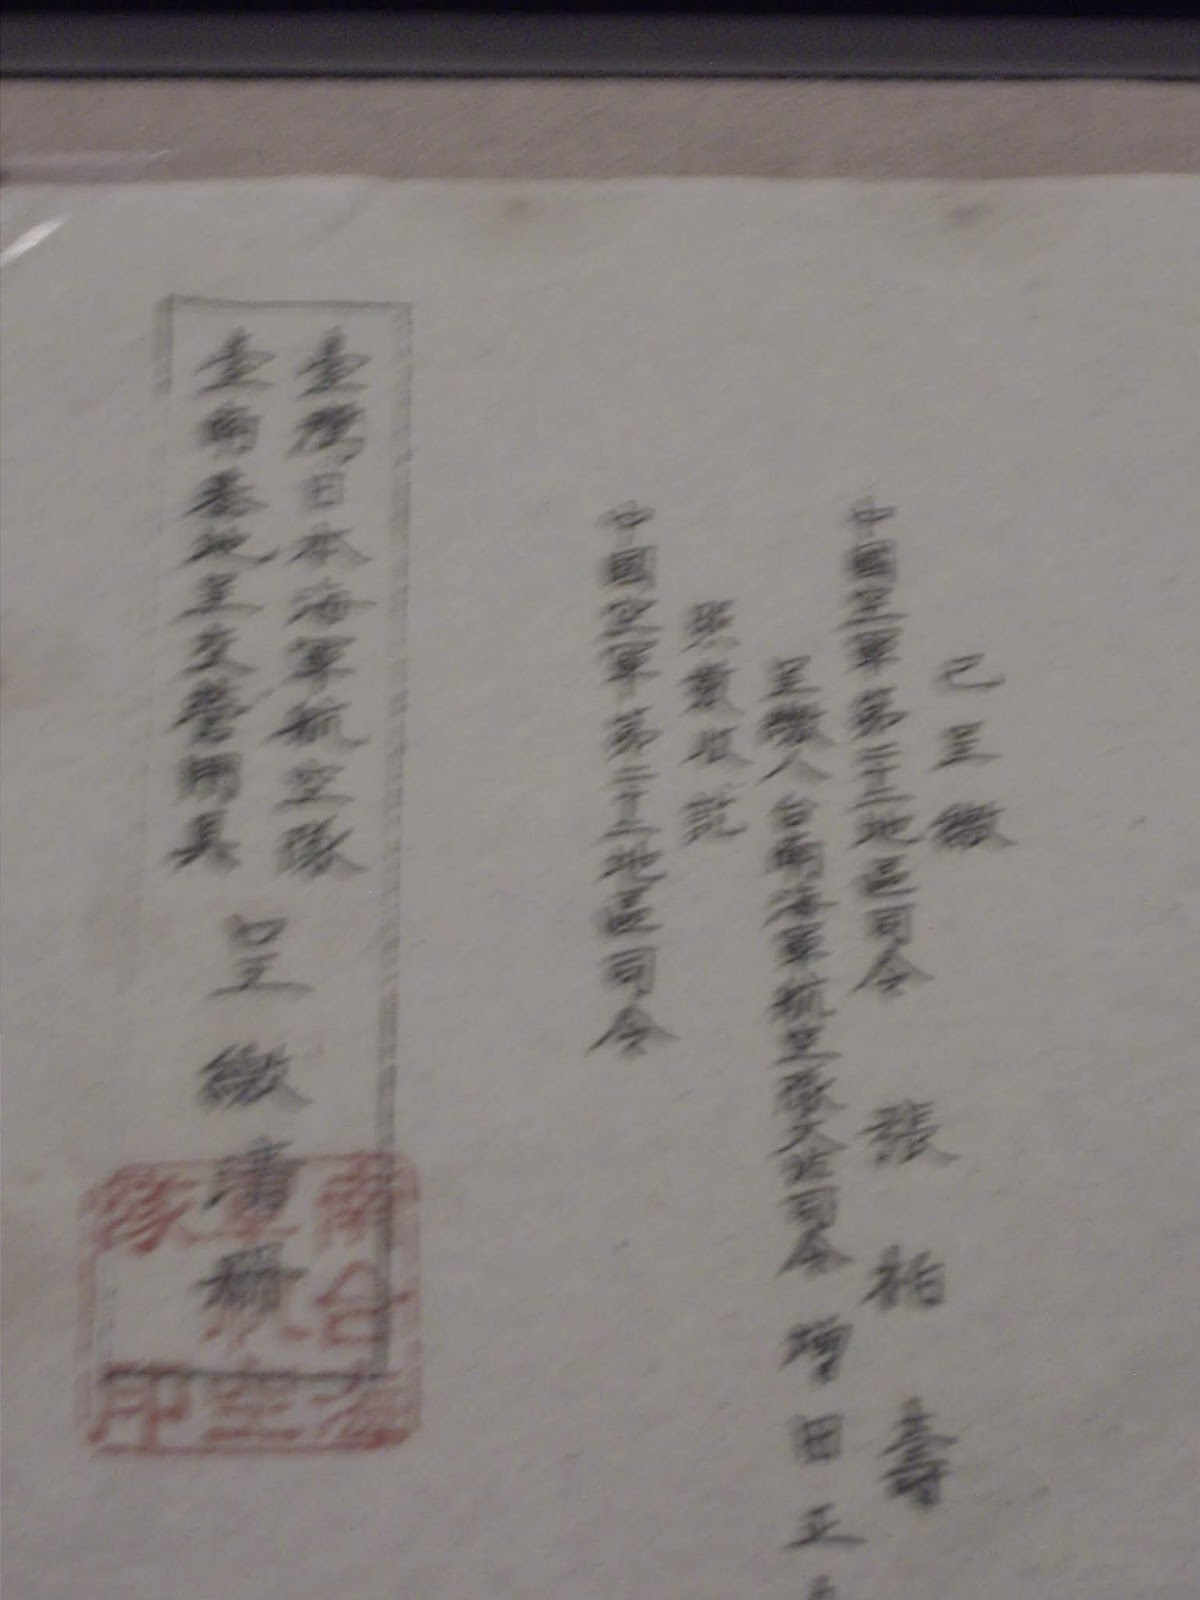 已呈繳
中國空軍第二十二地區司令 張柏壽
呈繳人台南海軍航空隊大佐司令 增田正
照數收訖
中國空軍第二十二地區司令
臺灣日本海軍航空隊
臺南基地呈交營具
呈繳清冊
南台海
軍航空
隊印